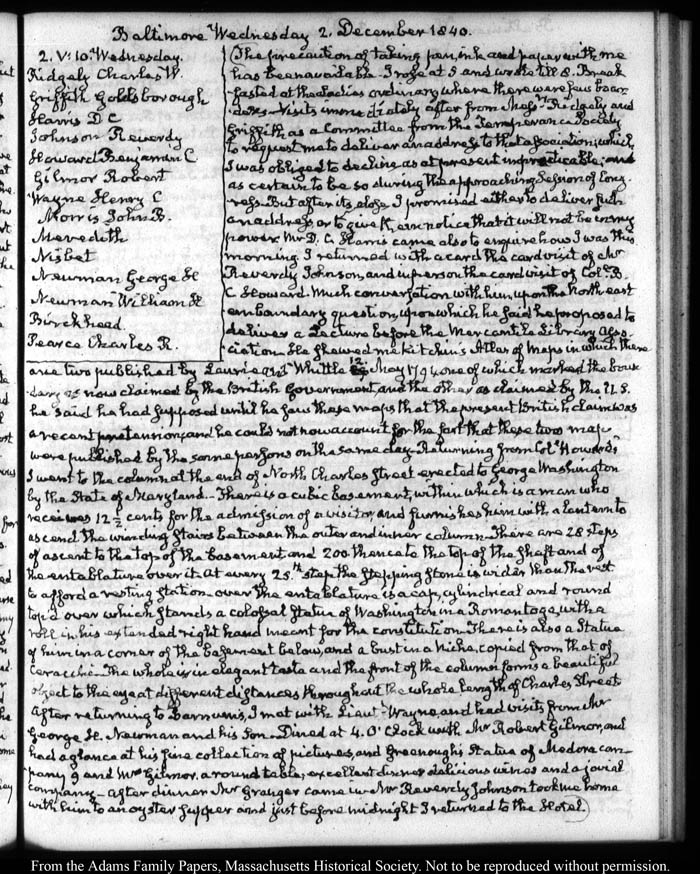 Baltimore Wednesday 2. December 1840.
2. V: 10. Wednesday.
Ridgely Charles W.
Griffith Goldsborough
Harris D C
Johnson Reverdy
Howard Benjamin C
Gilmor Robert
Wayne Henry C
Morris John B.
Meredith
Nisbet
Newman George H
Newman William H
Birckhead.
Pearce Charles R.
The precaution of taking pen, ink and paper with me
has been available. I rose at 5 and wrote till 8. Break
fasted at the Ladies ordinary where there were few boar
ders. Visits immediately after from Messrs Ridgely and
Griffith as a Committee from the Temperance Society
to request me to deliver an address to that association, which
I was obliged to decline as at present impracticable, and
as certain to be so during the approaching Session of Cong
ress. But after its close I promised either to deliver such
an address or to give them notice that it will not be in my
power. Mr D. C. Harris came also to enquire how I was this
morning. I returned with a card the card visit of Mr
Reverdy Johnson, and in person the card visit of Coll. B.
C Howard. Much conversation with him, upon the North east
ern boundary question, upon which he said he proposed to
deliver a Lecture before the Mercantile Library Asso
ciation. He shewed me Kitchin's Atlas of Maps in which there
are two published by Laurie and Whittle 12 May 1794, one of which marked the boun
dary as now claimed by the British Government, and the other as claimed by the U.S.
he said he had supposed until he saw these maps that the present British claim was
a recent pretension, and he could not now account for the fact that these two maps
were published by the same persons on the same day. Returning from Coll Howard's
I went to the column at the end of North Charles Street erected to George Washington
by the State of Maryland. There is a cubic basement, within which is a man who
receives 12½ cents for the admission of a visitor, and furnishes him with a lantern to
ascend the winding stairs between the outer and inner column. There are 28 steps
of ascent to the top of the basement and 200 thence to the top of the shaft and of
the entablature over it. At every 25.th step the stepping stone is wider than the rest
to afford a resting station. over the entablature is a cap, cylindrical and round
top'd over which stands a colossal Statue of Washington in a Roman toga, with a
roll in his extended right hand meant for the constitution. There is also a Statue
of him in a corner of the basement below, and a bust in a niche, copied from that of
Ceracchi. The whole is in elegant taste and the front of the column forms a beautiful
object to the eye at different distances throughout the whole length of Charles Street
After returning to Barnum's, I met with Lieutt Wayne, and had visits from Mr
George H. Newman and his Son. Dined at 4. O'Clock with Mr Robert Gilmor, and
had a glance at his fine collection of pictures, and Greenough's Statue of Medora com-
pany 9 and Mrs Gilmor. a round table, excellent dinner delicious wines and a jovial
company. after dinner Mr Granger came in. Mr Reverdy Johnson took me home
with him to an oyster supper and just before midnight I returned to the Hotel.
From the Adams Family Papers, Massachusetts Historical Society. Not to be reproduced without permission.